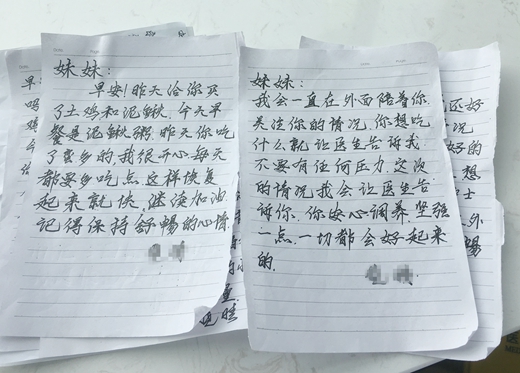 妹妹:
早安!昨天给你买
了土鸡和泥鳅.今天早
餐是泥鳅粥.昨天你吃
了蛮多的,我很开心,每天
都要多吃点,这样恢复
起来就快.继续加油
记得保持舒畅的心情.
妹妹:
我会一直在外面陪着你.
关注你的情况,你想吃
什么就让医生告诉我.
不要有任何压力.定波
的情况我会让医生告
诉你.你安心调养.坚强
一点.一切都会好起来
的.